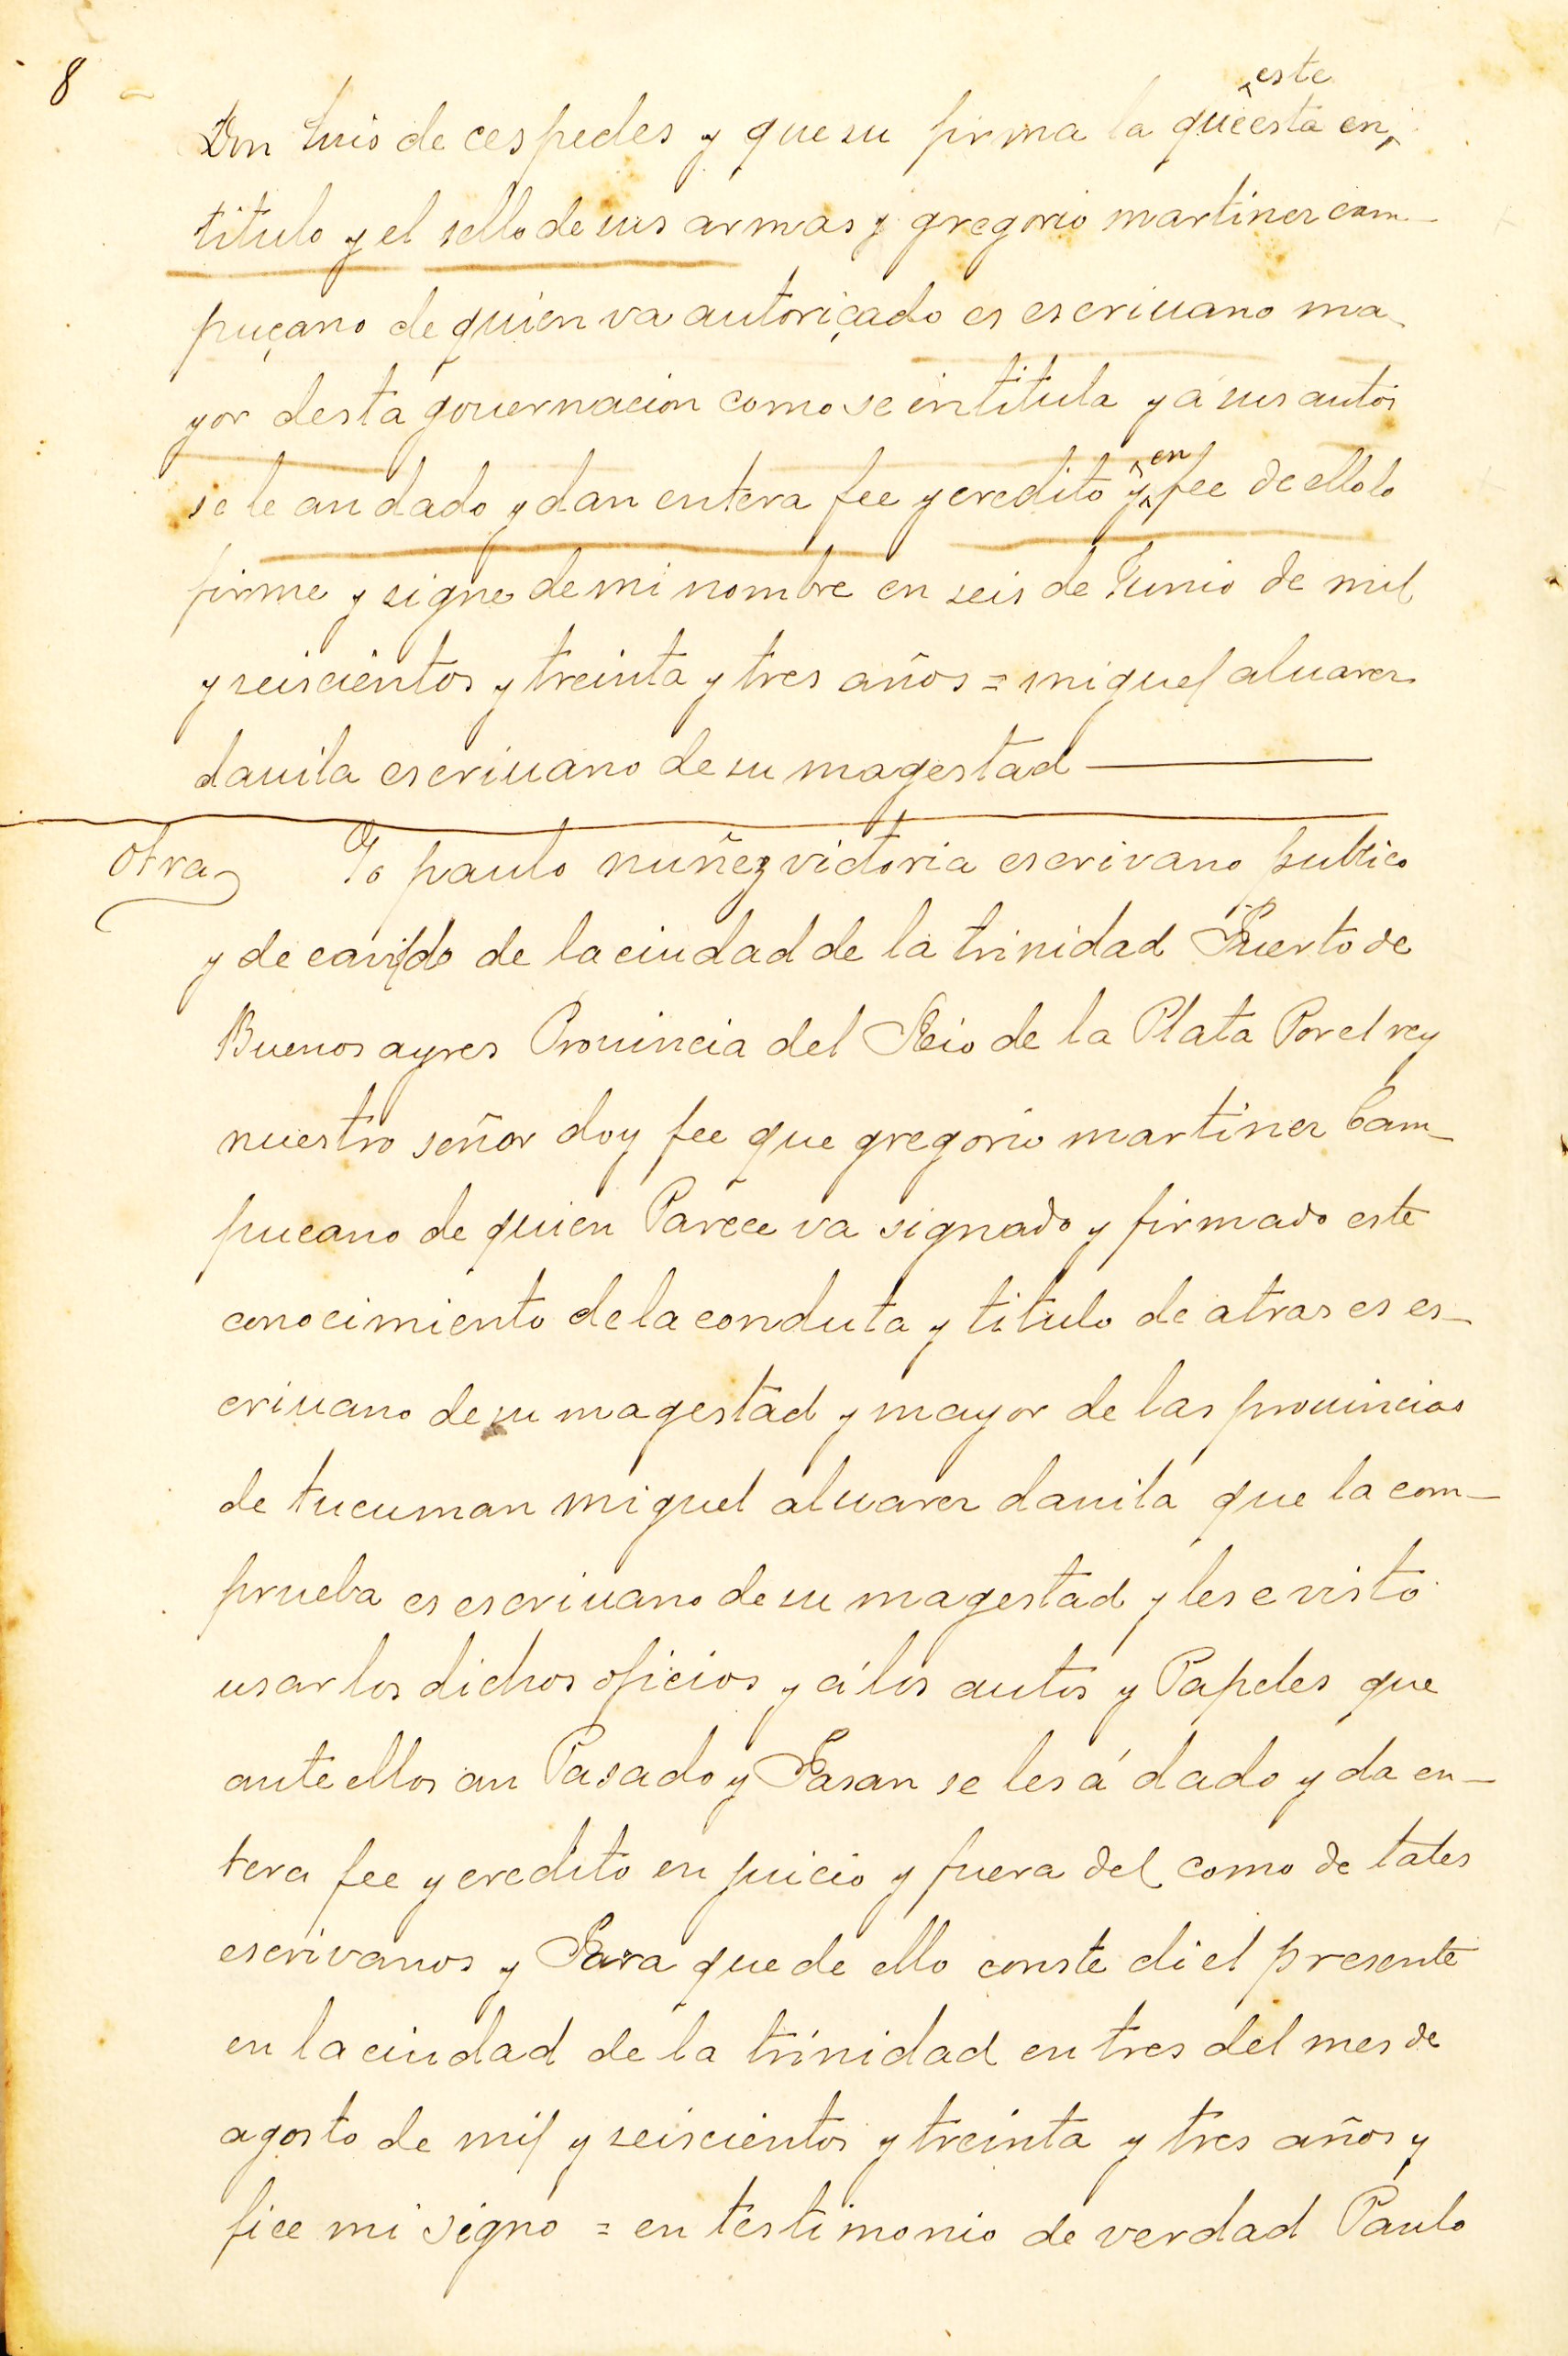 8
Don Luis de cespedes y que su firma la que esta en este
titulo y el sello de sus armas y gregorio martinez cam-
puçano de quien va autoriçado es escriuano ma-
yor desta gouernacion como se intitula y a sus autos
se le an dado y dan entera fee y credito y en fee de ello lo
firme y signe de mi nombre en seis de Junio de mil
y seiscientos y treinta y tres años = miguel aluarez
dauila escriuano de su magestad
otra Yo paulo nuñez victoria escrivano publico
y de cavildo de la ciudad de la trinidad Puerto de
Buenos ayres Prouincia del Rio de la Plata Por el rey
nuestro señor doy fee que gregorio martinez Cam-
pucano de quien Parece va signado y firmado este
conocimiento de la conduta y titulo de atras es es-
criuano de su magestad y mayor de las prouincias
de tucuman miguel aluarez dauila que la com-
prueba es escriuano de su magestad y les e visto
usar los dichos oficios y á los autos y Papeles que
ante ellos an Pasado y Pasan se les á dado y da en-
tera fee y credito en juicio y fuera del como de tales
escrivanos y Para que de ello conste di el presente
en la ciudad de la trinidad en tres del mes de
agosto de mil y seiscientos y treinta y tres años y
fice mi signo = en testimonio de verdad Paulo